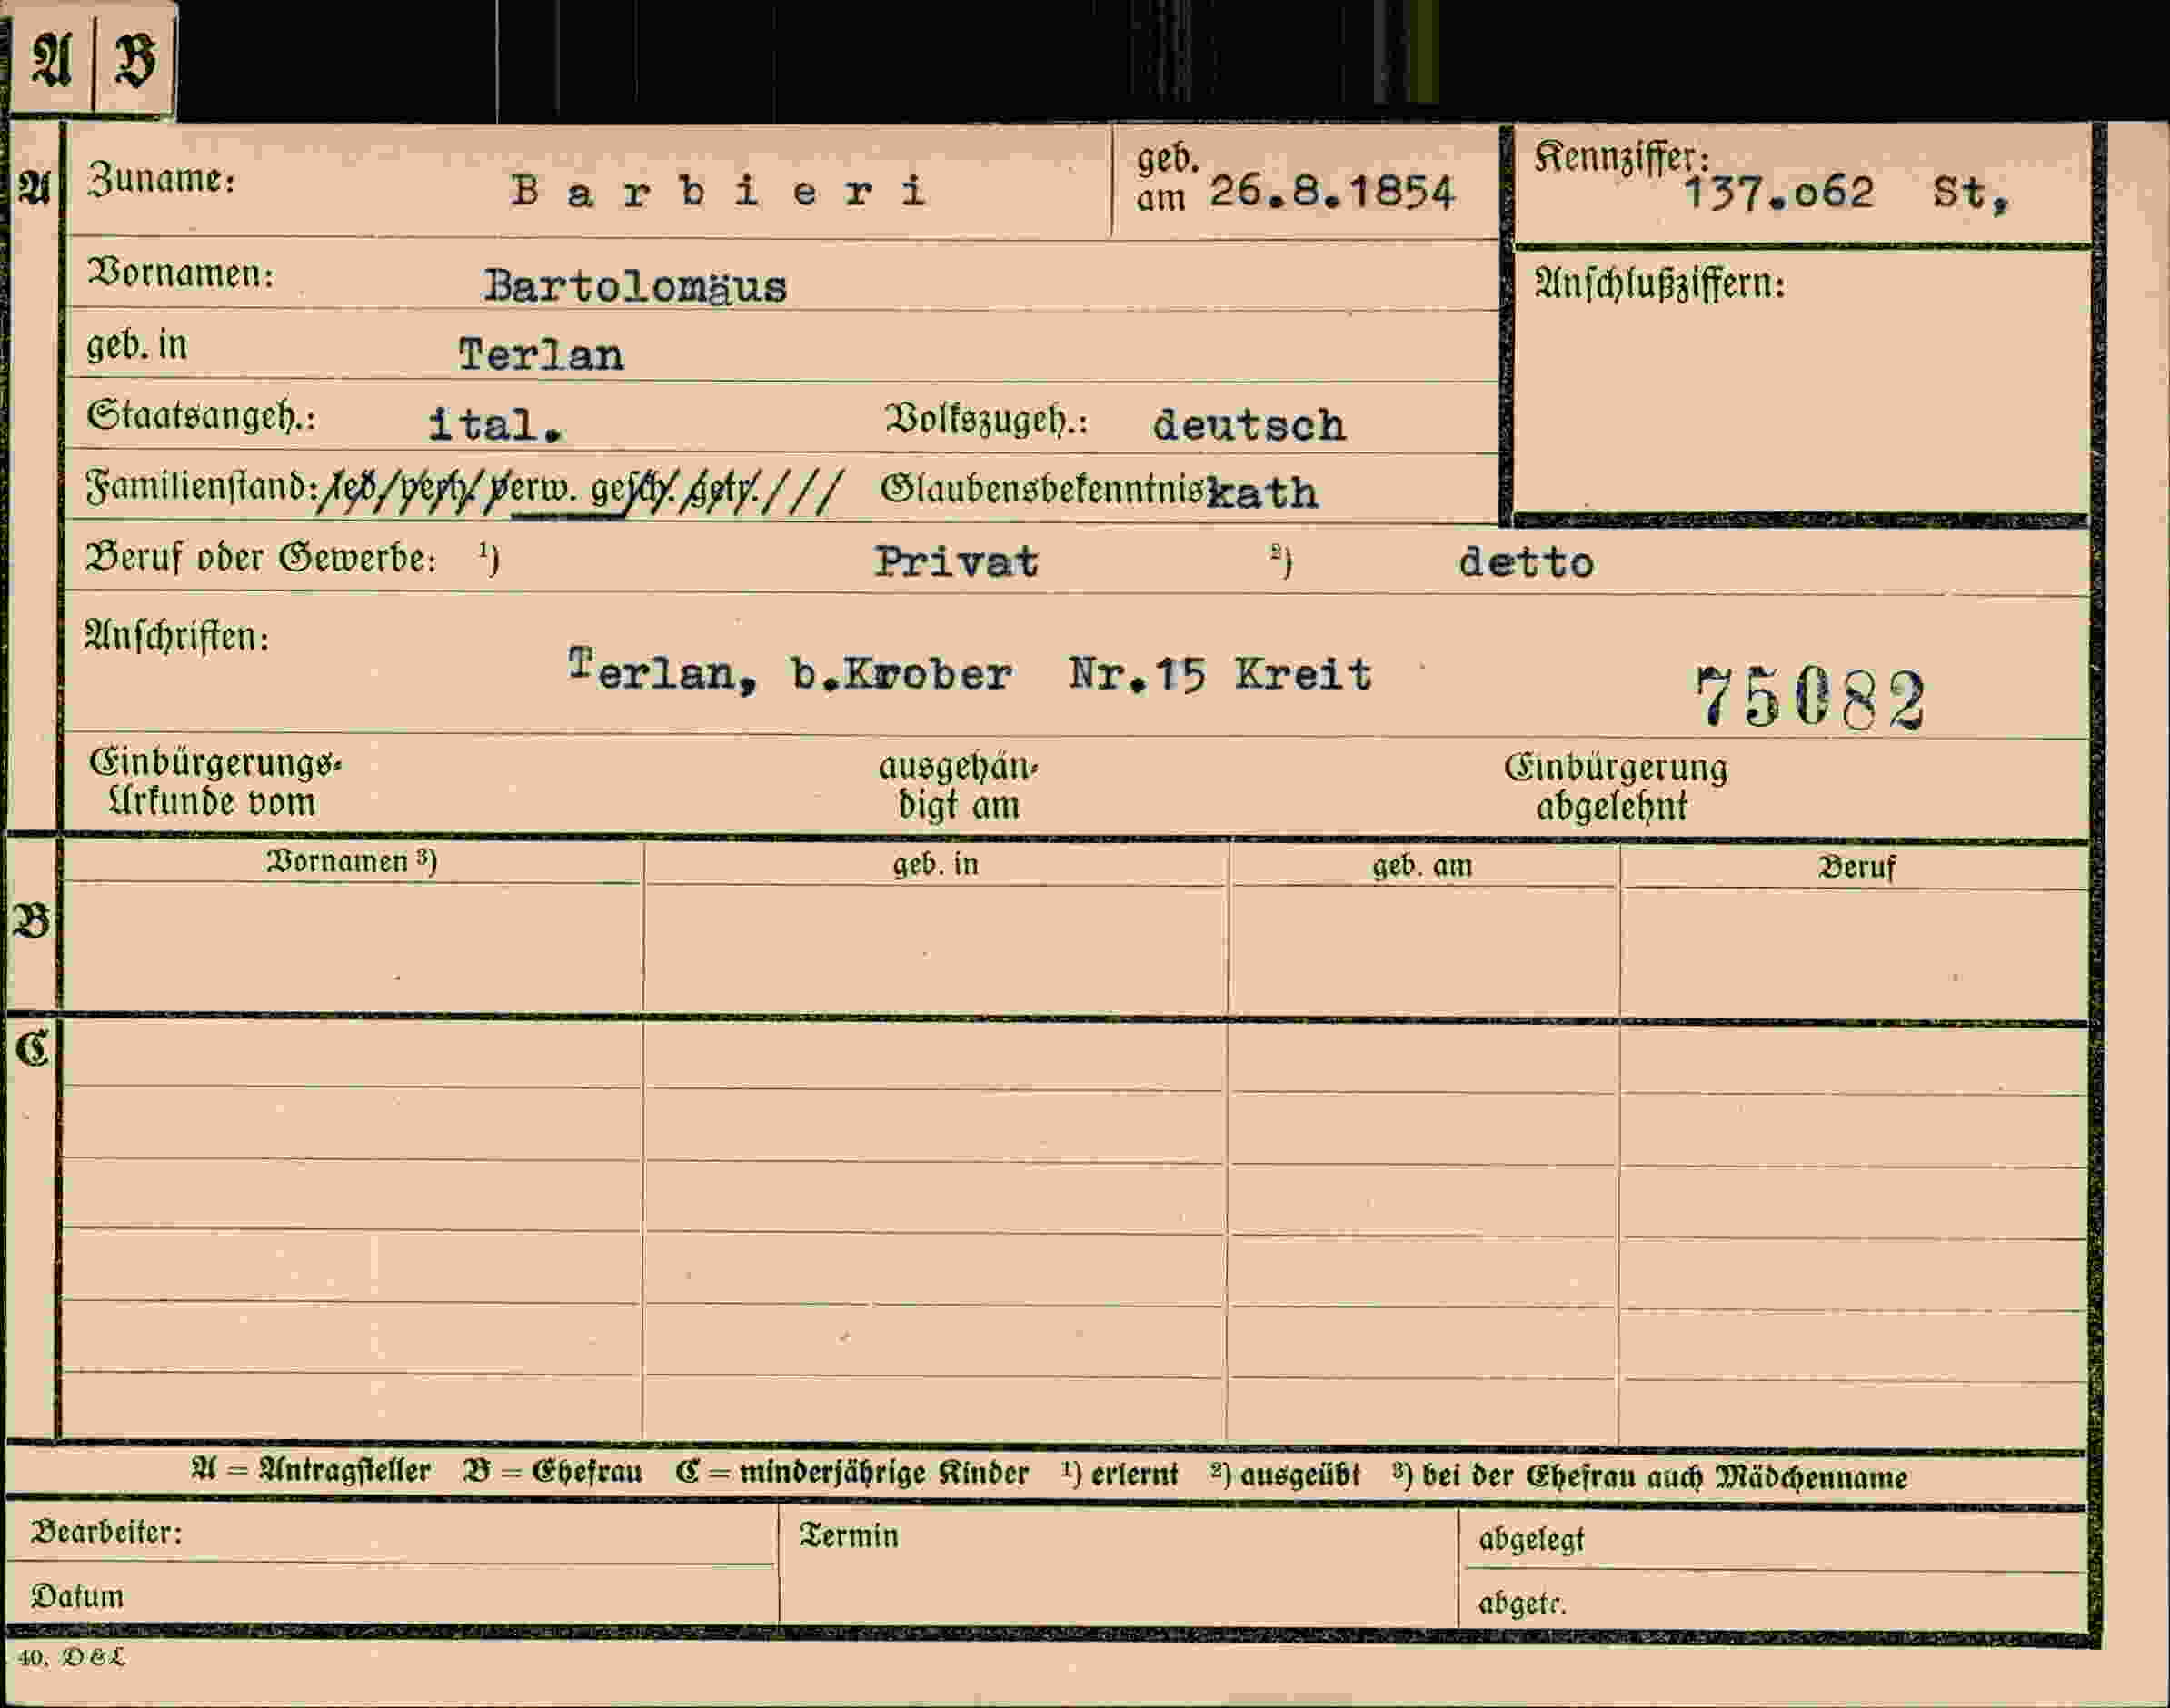 A B
A Zuname: Barbieri geb. am 26.8.1854 Kennziffer: 137.o62 St,
Vornamen: Bartolomäus Anschlußziffern:
geb. in Terlan
Staatsangeh.: ital. Volkszugeh.: deutsch
Familienstand: led/verh/verw. gesch. getr./// Glaubensbekenntnis kath
Beruf oder Gewerbe: ¹) Privat ²) detto
Anschriften: Terlan, b. Nr.15 Kreit 75082
Einbürgerungs- ausgehän- Einbürgerung
Urkunde vom digt am abgelehnt
Vornamen ³) geb. in geb. am Beruf
B
C
A = Antragsteller B = Ehefrau C = minderjährige Kinder ¹) erlernt ²) ausgeübt ³) bei der Ehefrau auch Mädchenname
Bearbeiter: Termin abgelegt
Datum abgetr.
40. D & L